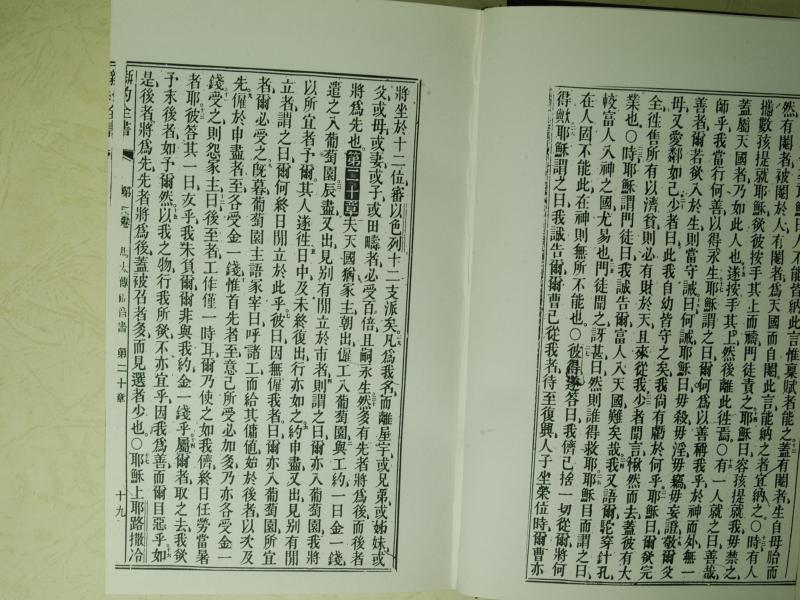 不能皆納此言惟稟賦者能之蓋有閹者生自母胎而
然有閹者被閹於人有閹者爲天國而自閹此言能納之者宜納之〇時有人
攜數孩提就耶穌欲彼按手其上而禱門徒責之耶穌曰容孩提就我毋禁之
蓋屬天國者乃如此人也遂按手其上然後離此往焉〇有一人就之曰善哉
師乎我當行何善以得永生耶穌謂之曰爾何爲以善稱我乎於神而外無一
善者爾若欲入於生則當守誡曰何誡耶穌曰毋殺毋淫毋竊毋妄證敬爾父
母又愛鄰如己少者曰此我自幼皆守之矣我尚有虧於何乎耶穌曰爾欲完
全往售所有以濟貧則必有財於天且來從我少者聞言愀然而去蓋彼有大
業也〇時耶穌謂門徒曰我誠告爾富人入天國難矣哉我又語爾駝穿針孔
較富人入神之國尤易也門徒聞之訝甚曰然則誰得救耶耶穌目而謂之曰
在人固不能此在神則無所不能也〇彼得遂答曰我儕已捨一切從爾將何
得歟耶穌謂之曰我誠告爾爾曹已從我者待至復興人子坐榮位時爾曹亦
將坐於十二位審以色列十二支派矣凡爲我名而離屋宇或兄弟或姊妹或
父或母或妻或子或田疇者必受百倍且嗣永生然多有先者將爲後而後者
將爲先也第二十章夫天國猶家主朝出僱工入葡萄園與工約一日金一錢
遣之入葡萄園辰盡又出見別有閒立於市者則謂之曰爾亦入葡萄園我將
以所宜者予爾其人遂往日中及未終復出行亦如之約申盡又出見別有閒
立者謂之曰爾何終日閒立於此乎彼曰因無僱我者曰爾亦入葡萄園所宜
者爾必受之旣暮葡萄園主語家宰曰呼諸工而給其傭値始於後者以次及
先僱於申盡者至各受金一錢惟首先者至意己所受必加多乃亦各受金一
錢受之則怨家主曰後至者工作僅一時耳爾乃使之如我儕終日任勞當暑
者耶彼答其一曰友乎我未負爾爾非與我約金一錢乎屬爾者取之去我欲
予末後者如予爾然以我之物行我所欲不亦宜乎因我爲善而爾目惡乎如
是後者將爲先先者將爲後蓋被召者多而見選者少也〇耶穌上耶路撒冷
新約全書 馬太傳福音書 第二十章 十九